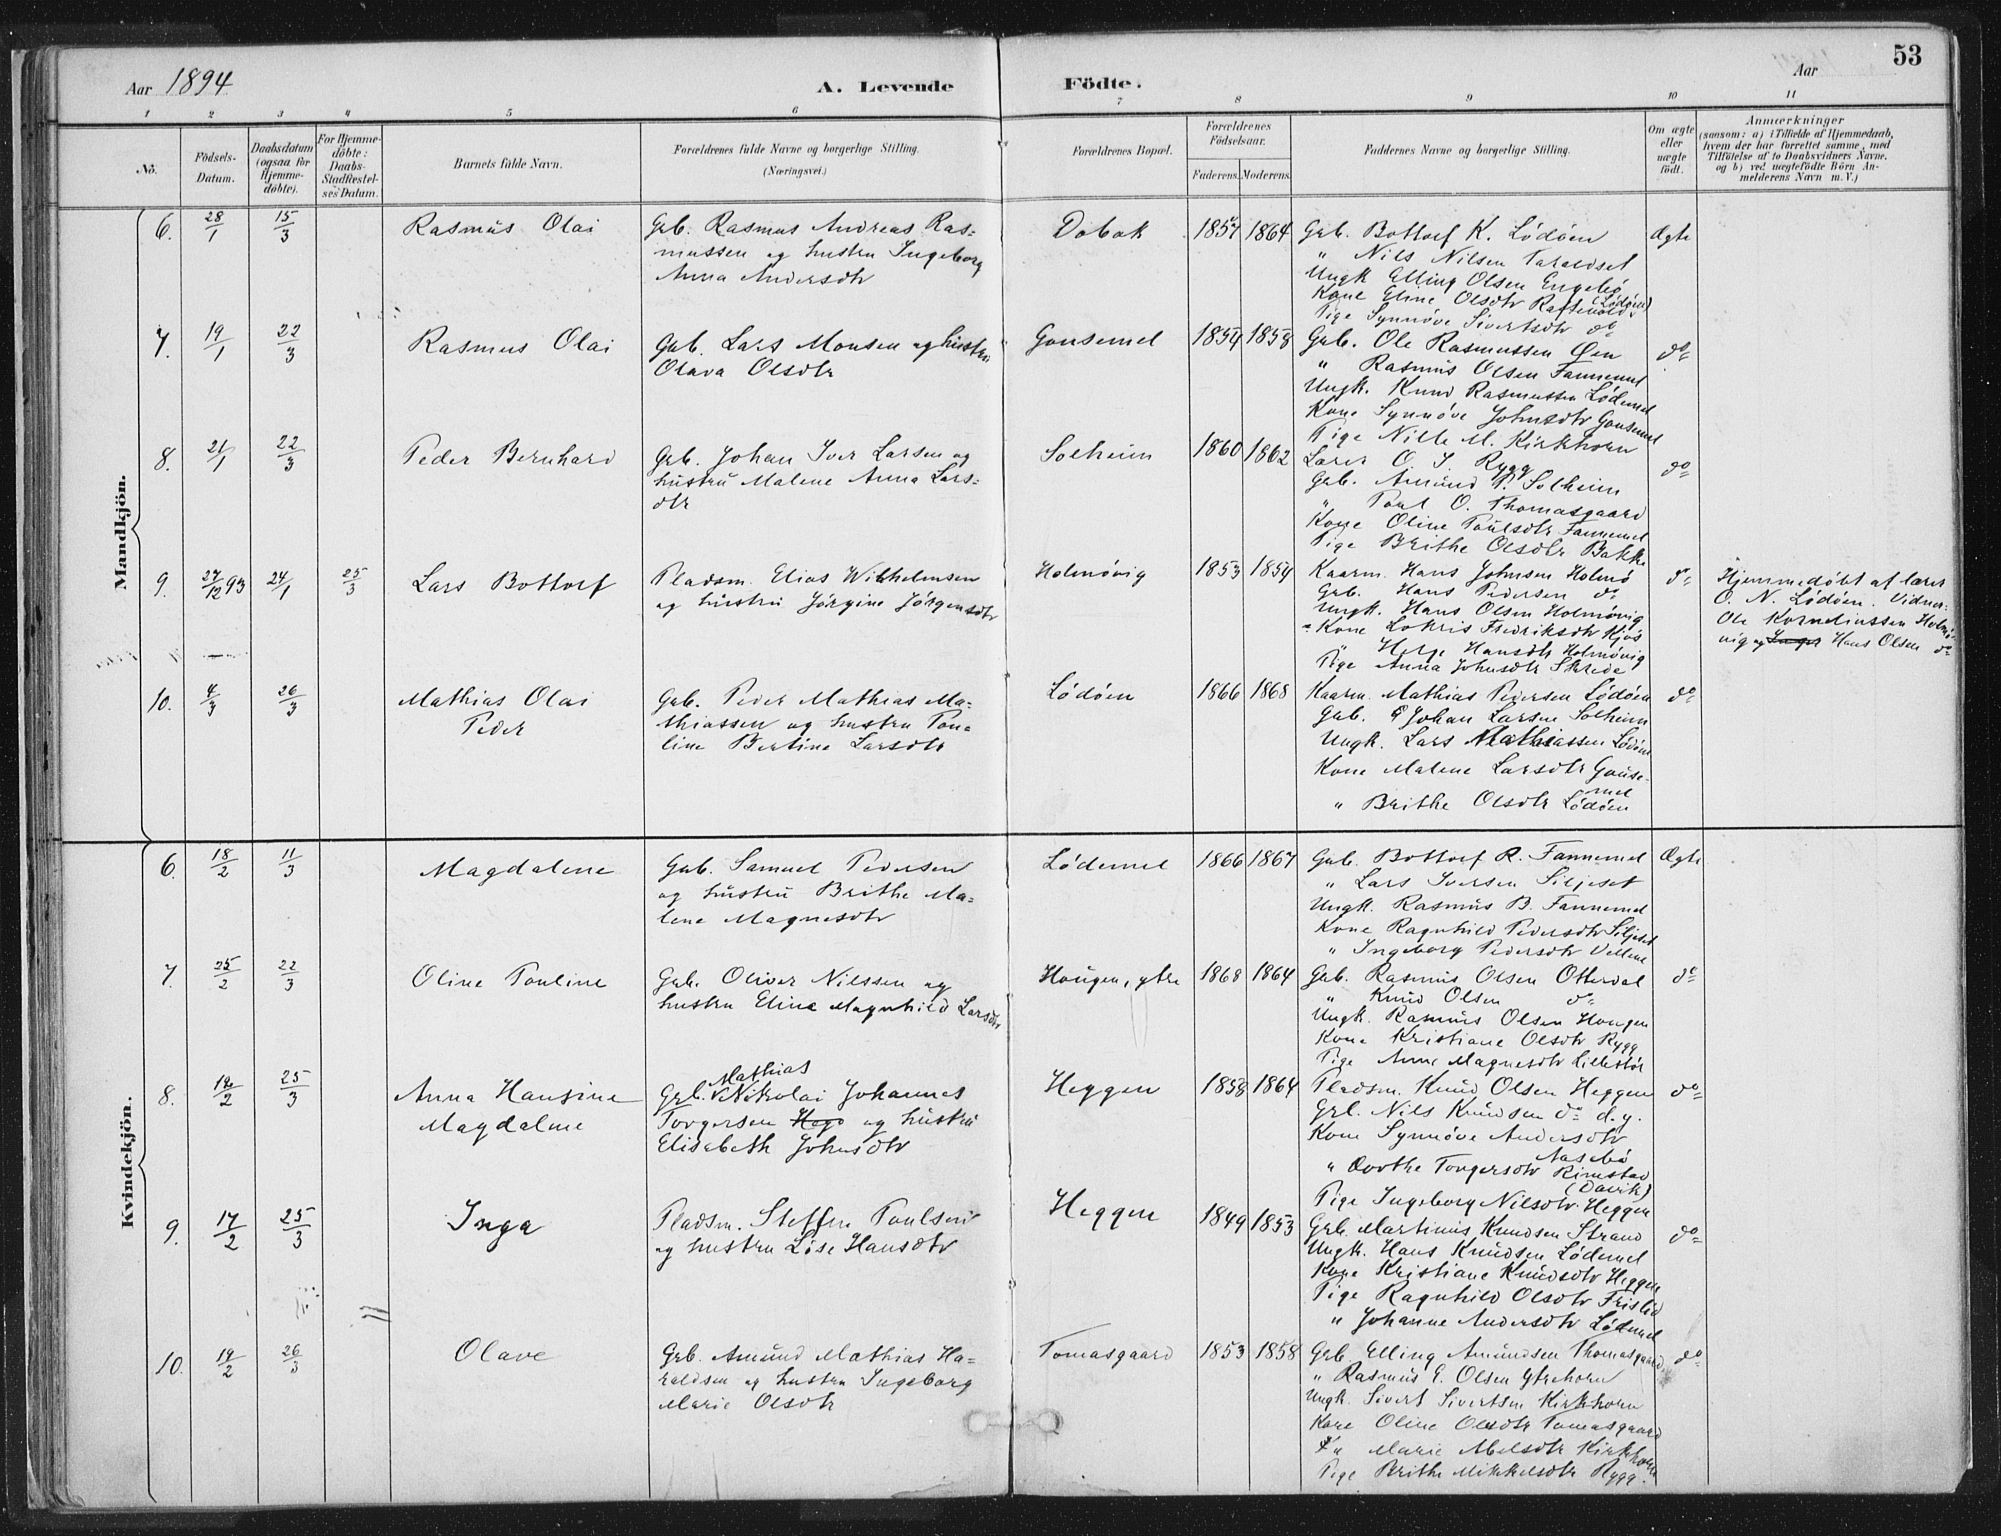 53
Aar 1894
A. Levende Födte.
Aar
1 2 3 4 5 6 7 8 9 10 11
No.
Födsels-Datum.
Daabsdatum (ogsaa for Hjemme-döbte).
For Hjemme-döbte: Daabs-Stadfæstel-ses Datum.
Barnets fulde Navn.
Forældrenes fulde Navne og borgerlige Stilling. (Næringsvei.)
Forældrenes Bopæl.
Forældrenes Födselsaar.
Faderens. Moderens.
Faddernes Navne og borgerlige Stilling.
Om ægte eller uægte födt.
Anmærkninger
(saasom: a) i Tilfælde af Hjemmedaab,
hvem der har forrettet samme, med
Tilföielse af to Daabsvidners Navne,
og b) ved uægtefödte Börn An-
melderens Navn m. V.)
Mandkjön.
6. 28/1 15/3 Rasmus Olai
Grb. Rasmus Andreas Ras-
mussen og hustru Ingeborg
Anna Andersdtr
Dobak 1857 1864
Grb. Bottorf K. Lödöen
" Nils Nilsen Taraldset
Ungk Elling Olsen Engebö
Kone Eline Olsdtr Raftevold (Lödöen)
Pige Synnöve Sivertsdtr do
Ægte
7. 19/1 22/3 Rasmus Olai
Grb. Lars Monsen og hustru
Olava Olsdtr
Gausemel 1854 1858
Grb. Ole Rasmussen Öen
" Rasmus Olsen Fannemel
Ungk. Knud Rasmussen Lödemel
Kone Synnöve Johnsdtr Gausemel
Pige Nille M. Kirkhorn
do
8. 21/1 22/3 Peder Bernhard
Grb. Johan Iver Larsen og
hustru Malene Anna Lars-
dtr
Solheim 1860 1862
Lærer O. J. Rygg
Grb. Amund P. Solheim
" Poul O. Thomasgaard
Kone Oline Poulsdtr Fannemel
Pige Brithe Olsdtr Bakke
do
9. 27/12 93 24/1 25/3 Lars Bottorf
Pladsm. Elias Wilhelmsen
og hustru Jörgine Jörgensdtr
Holmövig 1853 1854
Kaarm. Hans Johnsen Holmö
Grb. Hans Pedersen do
Ungk. Hans Olsen Holmövig
Kone Lokris Fredriksdtr Kjös
" Helge Hansdtr Holmövig
Pige Anna Johnsdtr Skrede
do
Hjemmedöbt af lærer
O. N. Lödöen. Vidner:
Ole Kornelinssen Holmö-
vig og Hans Olsen do
10. 4/3 26/3 Mathias Olai
Peder
Grb. Peder Mathias Ma-
thiassen og hustru Pou-
line Bertine Larsdtr
Lödöen 1866 1868
Kaarm. Mathias Pedersen Lödöen
Grb. Johan Larsen Solheim
Ungk. Lars Mathiassen Lödöen
Kone Malene Larsdtr Gause-
mel
" Brithe Olsdtr Lödöen
do
Kvindekjön.
6. 18/2 11/3 Magdalene
Grb. Samuel Pedersen
og hustru Brithe Ma-
lene Magnesdtr
Lödemel 1866 1867
Grb. Bottorf R. Fannemel
" Lars Iversen Siljeset
Ungk. Rasmus B. Fannemel
Kone Ragnhild Pedersdtr Siljeset
" Ingeborg Pedersdtr Vellene
Ægte
7. 25/2 22/3 Oline Pouline
Grb. Oliver Nilssen og
hustru Eline Magnhild Larsdtr
Hougen, ytre 1868 1864
Grb. Rasmus Olsen Otterdal
" Knud Olsen do
Ungk. Rasmus Olsen Hougen
Kone Kristiane Olsdtr Rygg
Pige Anne Magnesdtr Lillestöl
do
8. 14/2 25/3 Anna Hansine
Magdalene
Mathias
Grb. Nikolai Johannes
Torgersen og hustru
Elisabeth Johnsdtr
Heggen 1858 1864
Pladsm. Knud Olsen Heggen
Grb. Nils Knudsen do d.y.
Kone Synnöve Andersdtr
Aasebö
" Dorthe Torgersdtr Rimstad
(Davik)
Pige Ingeborg Nilsdtr Heggen
do
9. 17/2 25/3 Inga
Pladsm. Steffen Poulsen
og hustru Lise Hansdtr
Heggen 1849 1853
Grb. Martinus Knudsen Strand
Ungk. Hans Knudsen Lödemel
Kone Kristiane Knudsdtr Heggen
Pige Ragnhild Olsdtr Frislid
" Johanne Andersdtr Lödemel
do
10. 19/2 26/3 Olave
Grb. Amund Mathias Ha-
raldsen og hustru Ingeborg
Marie Olsdtr
Tomasgaard 1853 1858
Grb Elling Amundsen Thomasgaard
" Rasmus E. Olsen Ytrehorn
Ungk. Sivert Sivertsen Kirkhorn
Kone Oline Olsdtr Tomasgaard
" Marie Abelsdtr Kirkhorn
Pige Brithe Mikkelsdtr Rygg
do